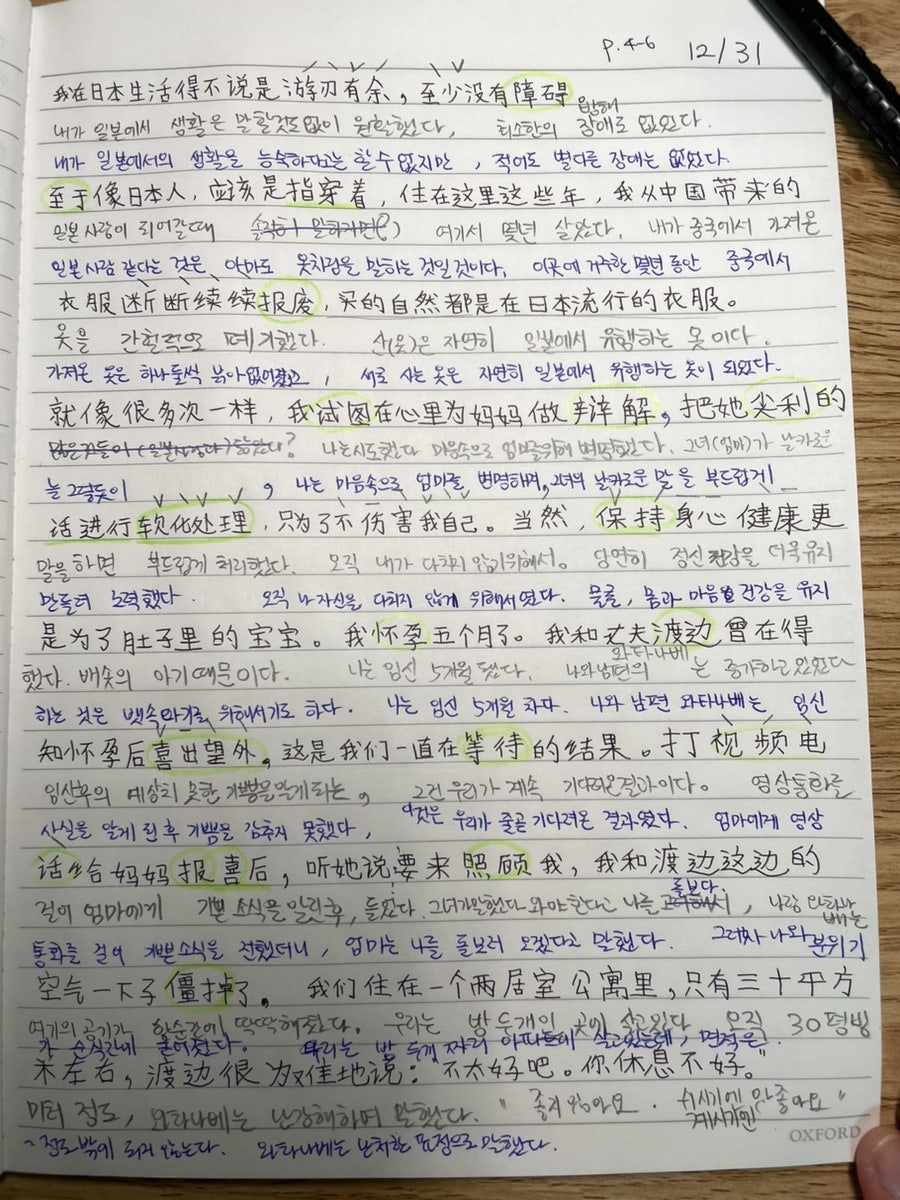 p.4-6 12/31
我在日本生活得不说是游刃有余，至少没有障碍
내가 일본에서 생활은 말할것도 없이 원활했다, 최소한의 장애도 없었다.
내가 일본에서의 생활을 능숙하다고는 할 수 없지만, 적어도 별다른 장애는 없었다.
至于像日本人，应该是指穿着，住在这里这些年，我从中国带来的
일본 사람이 되어갈때 여기서 몇년 살았다. 내가 중국에서 가져온
일본 사람 같다는 것은 아마도 옷차림을 말하는 것일 것이다. 이곳에 거주한 몇년 동안 중국에서
衣服断断续续报废，买的自然都是在日本流行的衣服。
옷을 간헐적으로 폐기했다. 산(옷)은 자연히 일본에서 유행하는 옷이다.
가져온 옷은 하나둘씩 낡아 없어졌고, 새로 사는 옷은 자연히 일본에서 유행하는 옷이 되었다.
就像很多次一样，我试图在心里为妈妈做辩解，把她尖利的
나는 시도했다 마음속으로 엄마를 위해 변명했다. 그녀(엄마)가 날카로운
늘 그렇듯이, 나는 마음속으로 엄마를 변명하며, 그녀의 날카로운 말을 부드럽게
话进行软化处理，只为了不伤害我自己。当然，保持身心健康更
말을 하면 부드럽게 처리했다. 오직 내가 다치지 않기위해서. 당연히 정신 건강을 더욱 유지
만들려 노력했다. 오직 나 자신을 다치지 않게 위해서였다. 물론, 몸과 마음의 건강을 유지
是为了肚子里的宝宝。我怀孕五个月了。我和丈夫渡边曾在得
했다. 배속의 아기 때문이다. 나는 임신 5개월 됐다. 나와 남편의 와타나베는
하는 것은 뱃속 아기를 위해서기도 하다. 나는 임신 5개월 차다. 나와 남편 와타나베는 임신
知怀孕后喜出望外，这是我们一直在等待的结果。打视频电
임신후의 예상치 못한 기쁨을 알게되는, 그건 우리가 계속 기다려온 결과이다. 영상통화를
사실을 알게 된 후 기쁨을 감추지 못했다, 이것은 우리가 줄곧 기다려온 결과였다. 엄마에게 영상
话给妈妈报喜后，听她说要来照顾我，我和渡边这边的
걸어 엄마에게 기쁜 소식을 알린후, 들었다. 그녀가 말했다 와야한다고 나를 돌보다, 나랑 와타나베는
통화를 걸어 기쁜소식을 전했더니, 엄마는 나를 돌보러 오겠다고 말했다. 그러자 나와 분위기
空气一下子僵掉了。我们住在一个两居室公寓里，只有三十平方
여기의 공기가 한순간에 딱딱해졌다. 우리는 방 두개의 곳에 살고있다 오직 30평방
가 순식간에 굳어졌다. 우리는 방 두개 짜리 아파트에 살고있는데, 면적은
米左右，渡边很为难地说：“不太好吧。你休息不好。”
미터 정도, 와타나베는 난감해하며 말했다. “좋지않아요. 쉬시기에 안좋아요”
~정도 밖에 되지 않는다. 와타나베는 난처한 표정으로 말했다.
OXFORD